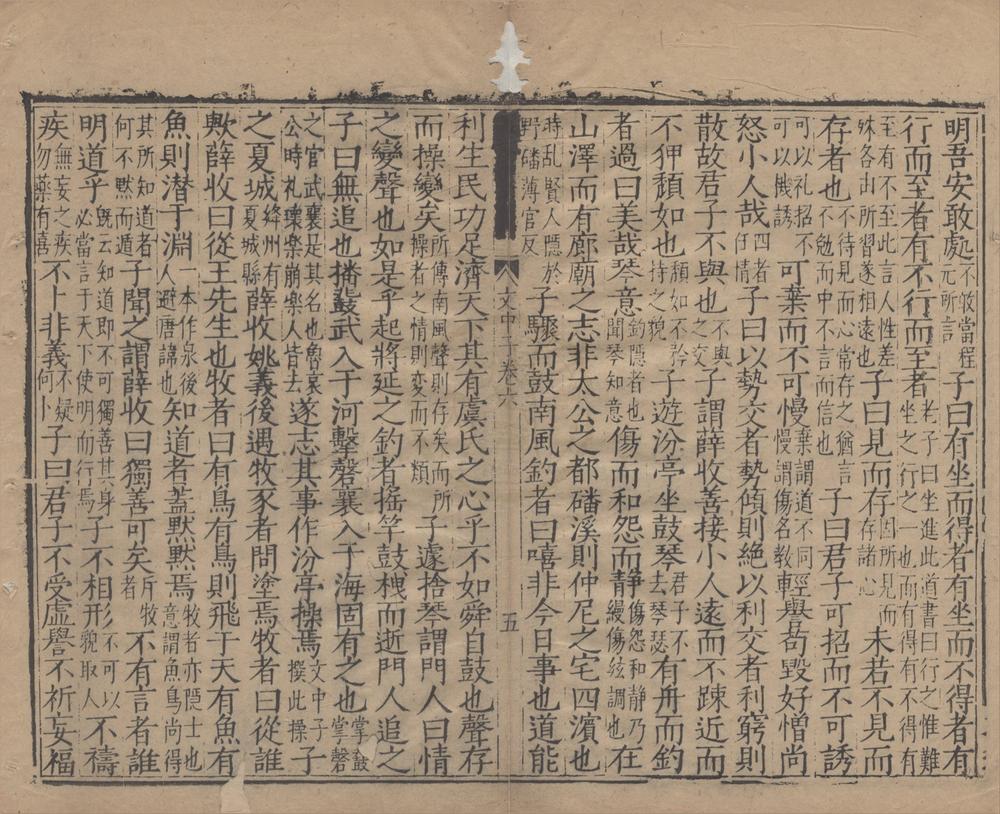 明吾安敢處不敢當程元所言子曰有坐而得者有坐而不得者有
行而至者有不行而至者老子曰坐進此道書曰行之惟難坐之行之一也而有得有不得有
至有不至此言人性差殊各由所習遂相遠也子曰見而存因所見而存諸心未若不見而
存者也不待見而心常存之猶言不勉而中不言而信也子曰君子可招而不可誘
可以礼招不可以機誘可棄而不可慢棄謂道不同慢謂傷名教輕譽苟毀好憎尚
怒小人哉四者任情子曰以勢交者勢傾則絶以利交者利窮則
散故君子不與也不與之交子謂薛收善接小人遠而不踈近而
不狎頹如也頹如不矜持之貌子遊汾亭坐鼓琴君子不去琴瑟有舟而釣
者過曰美哉琴意釣隱者也聞琴知意傷而和怨而靜傷怨和靜乃緩傷弦調也在
山澤而有廊廟之志非太公之都磻溪則仲尼之宅四濵也
時乱賢人隱於野磻薄官反子驟而鼓南風釣者曰嘻非今日事也道能
文中子卷六
五
利生民功足濟天下其有虞氏之心乎不如舜自鼓也聲存
而操變矣所傳南風聲則存矣而所操者之情則变而不類子遽捨琴謂門人曰情
之變聲也如是乎起將延之釣者搖竿鼓枻而逝門人追之
子曰無追也播鼗武入于河擊磬襄入于海固有之也掌鼓掌磬
之官武襄是其名也魯哀公時礼壞樂崩樂人皆去遂志其事作汾亭操焉文中子撰此操子
之夏城絳州有夏城縣薛收姚義後遇牧豕者問塗焉牧者曰從誰
歟薛收曰從王先生也牧者曰有鳥有鳥則飛于天有魚有
魚則潜于淵一本作泉後人避唐諱也知道者蓋默默焉牧者亦隱士也意謂魚鳥尚得
其所知道者何不默而遁子聞之謂薛收曰獨善可矣斥牧者不有言者誰
明道乎既云知道即不可獨善其身必當言于天下使明而行焉子不相形不可以貌取人不禱
疾無妄之疾勿藥有喜不卜非義不疑何卜子曰君子不受虛譽不祈妄福